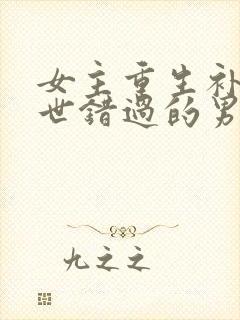 女主重生补
世错过的男
九之之